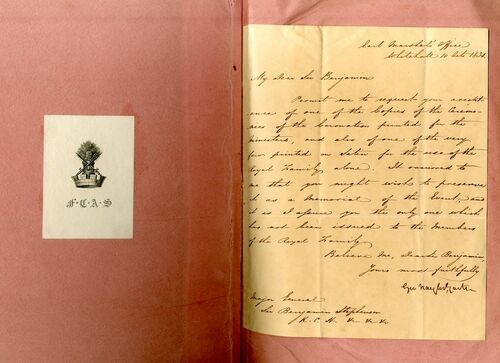 F·C·A·S
Earl Marshal's Office
Whitehall 10 Octr 1831.
My Dear Sir Benjamin
Permit me to request your accept
ance of one of the Copies of the Ceremo-
nies of the Coronation printed for the
Ministers, and also of one of the very
few printed on Satin for the use of the
Royal Family alone. It occurred to
me that you might wish to preserve
it as a Memorial of the Event, and
it is I assure you the only one which
has not been issued to the Members
of the Royal Family
Believe Me, Dear Sir Benjamin,
Yours most faithfully
Geo Nayler Garter
Major General
Sir Benjamin Stephenson
K. C. H. &c &c &c